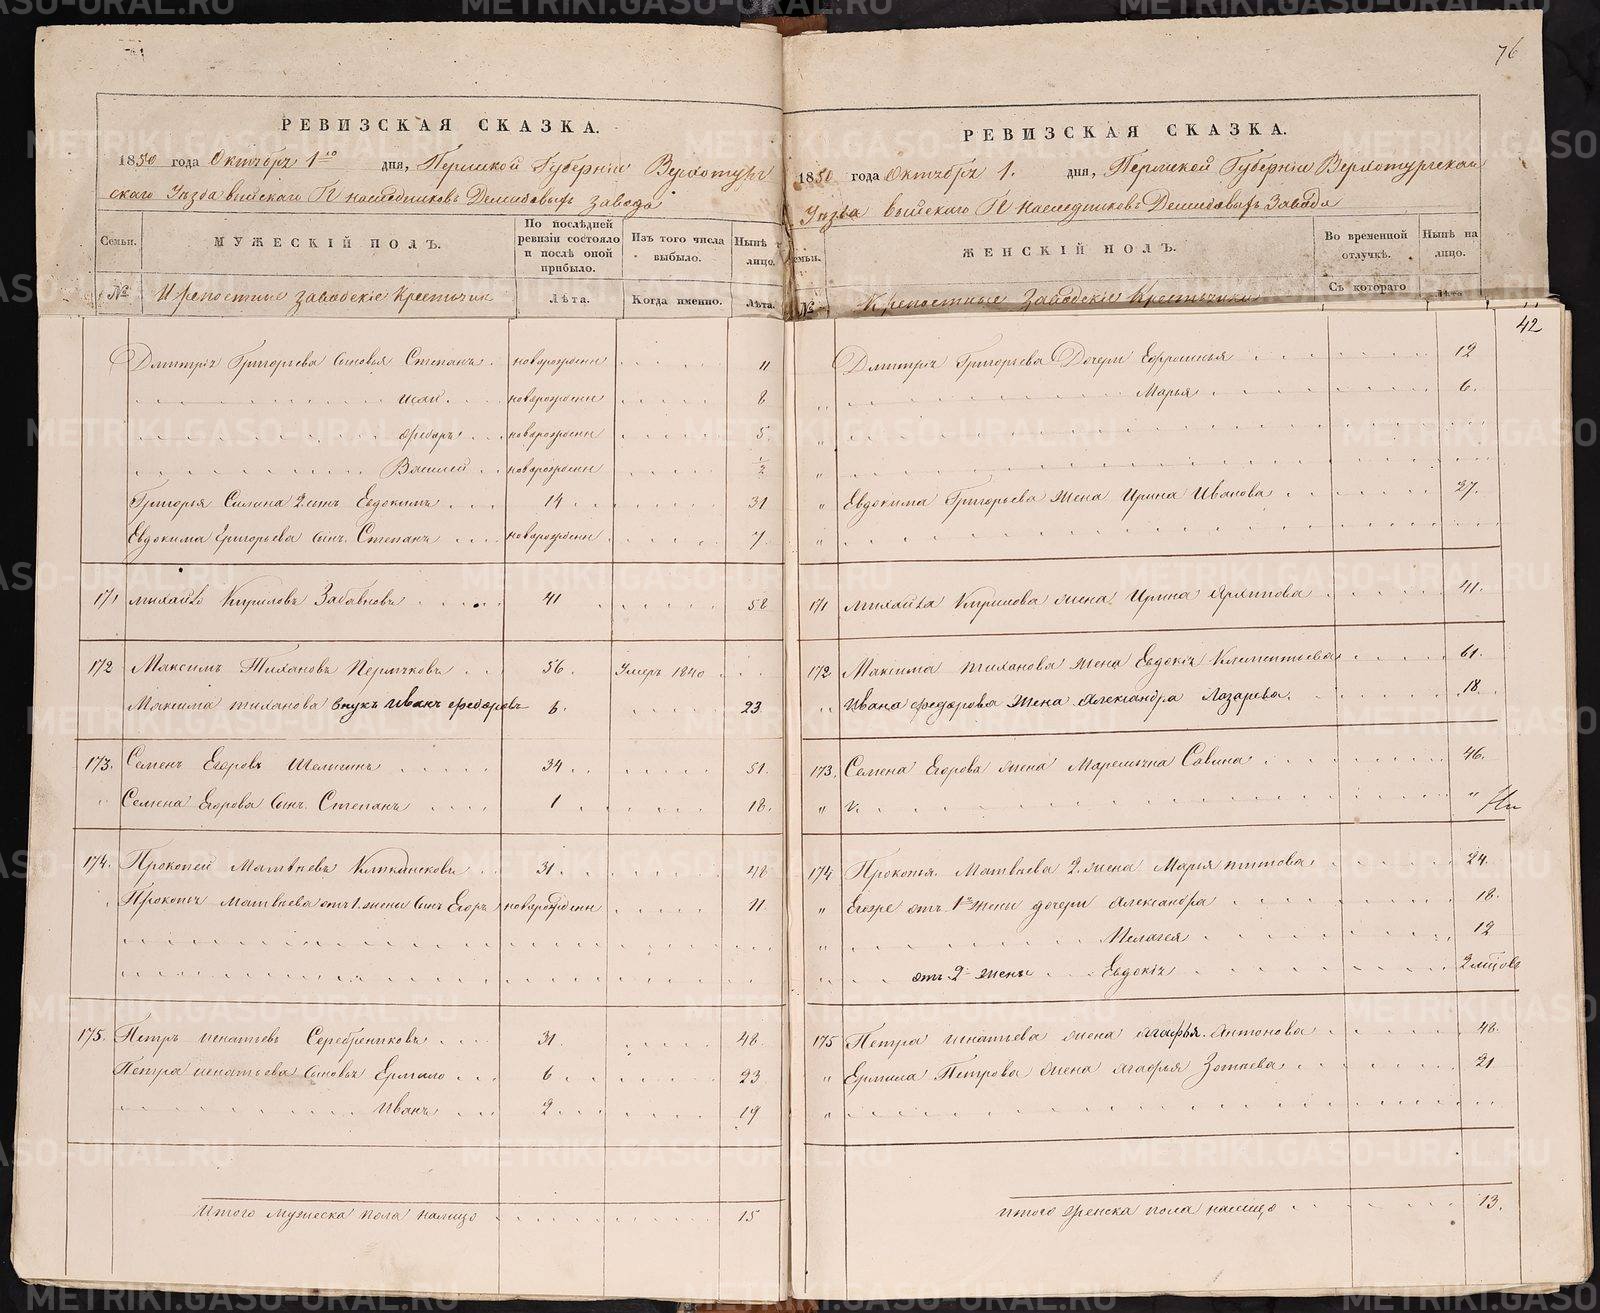 76
РЕВИЗСКАЯ СКАЗКА.
1850 года Октября 1го дня, Пермской Губерніи Верхотур
скаго Уѣзда Выйскаго Г наслѣдниковъ Демидовыхъ завода
Семьи. МУЖЕСКІЙ ПОЛЪ. По послѣдней ревизіи состояло и послѣ оной прибыло. Изъ того числа выбыло. Нынѣ лицо.
№ Крепостные заводскіе Крестьяне Лѣта. Когда именно. Лѣта.
Дмитрія Григорьева сыновья Степанъ новорожден 11
Исай новорожден 8
Федоръ новорожден 5
Василей новорожден 1/2
Григорья Силина 2 сынъ Евдокимъ 14 31
Евдокима Григорьева сынъ Степанъ новорожден 7
171 Михайло Кириловъ Забавновъ 41 58
172 Максимъ Тихановъ Пермяковъ 56 Умеръ 1840
Максима Тиханова внукъ Иванъ Федоровъ 6 23
173 Семенъ Егоровъ Шелигинъ 34 51
Семена Егорова сынъ Степанъ 1 18
174 Прокопей Матвѣевъ 31 48
Прокопья Матвѣева отъ 1 жены сынъ Егоръ новорожден 11
175 Петръ Игнатьевъ Серебрениковъ 31 48
Петра Игнатьева сыновья Ермило 6 23
Иванъ 2 19
Итого мужеска пола налицо 15
РЕВИЗСКАЯ СКАЗКА.
1850 года Октября 1. дня, Пермской Губерніи Верхотурскаго
Уѣзда Выйскаго Г наслѣдниковъ Демидовыхъ Завода
Семьи. ЖЕНСКІЙ ПОЛЪ. Во временной отлучкѣ. Нынѣ на лицо.
№ Крепостные Заводскіе Крестьянки Съ котораго Лѣта
42
Дмитрія Григорьева Дочери Ефросинья 12
Марья 6
Евдокима Григорьева жена Ирина Иванова 27
171 Михайла Кирилова жена Ирина Архипова 41
172 Максима Тиханова жена Евдокія Клементьева 61
Ивана Федорова жена Александра Лазарева 18
173 Семена Егорова жена Маремьяна Савина 46
174 Прокопья Матвѣева 2 жена Марья Титова 24
Егоже отъ 1й жены дочери Александра 18
Пелагея 12
отъ 2й жены Евдокія 2 мѣсяцовъ
175 Петра Игнатьева жена Агафья Антонова 48
Ермила Петрова жена Агафья Зотеева 21
Итого женска пола налицо 13
METRIKI.GASO-URAL.RU